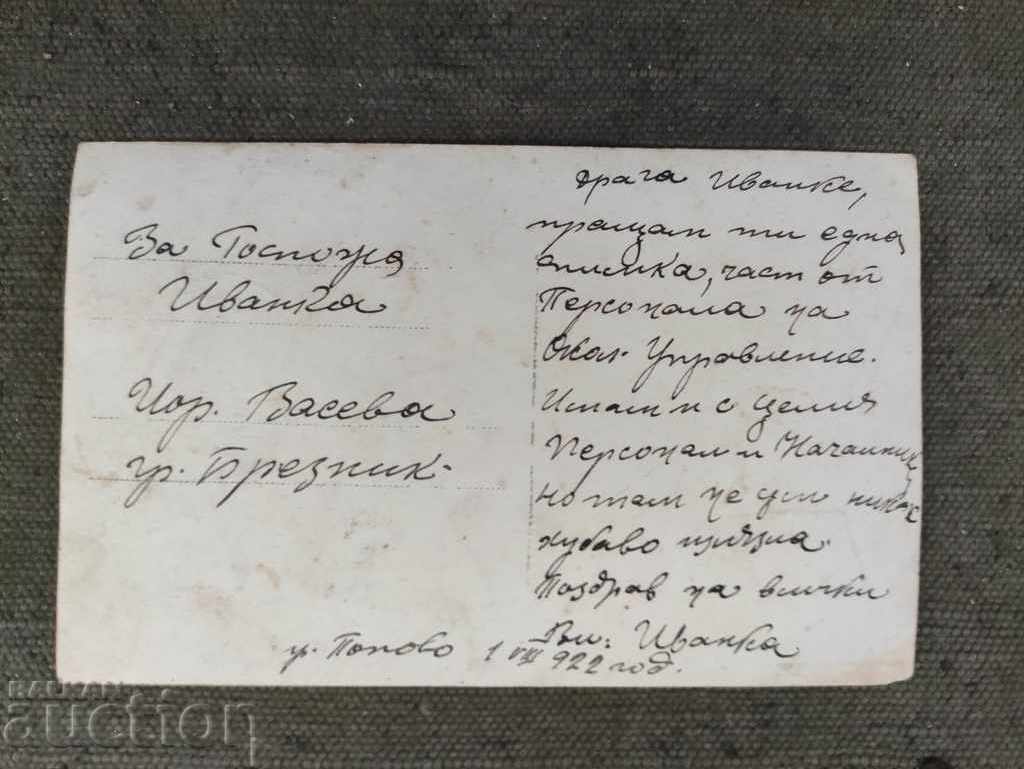 За Госпожа
Иванка
Иор. Васева
гр. Брезник.
Драга Иванке,
пращам ти една
снимка, част от
Персонала на
Окол. Управление.
Имам и с целия
Персонал и Началника
но там не съм никак
хубаво излязла.
Поздрав на всички
Иванка
гр. Попово 1 VIII 922 год.
BALKAN
auction